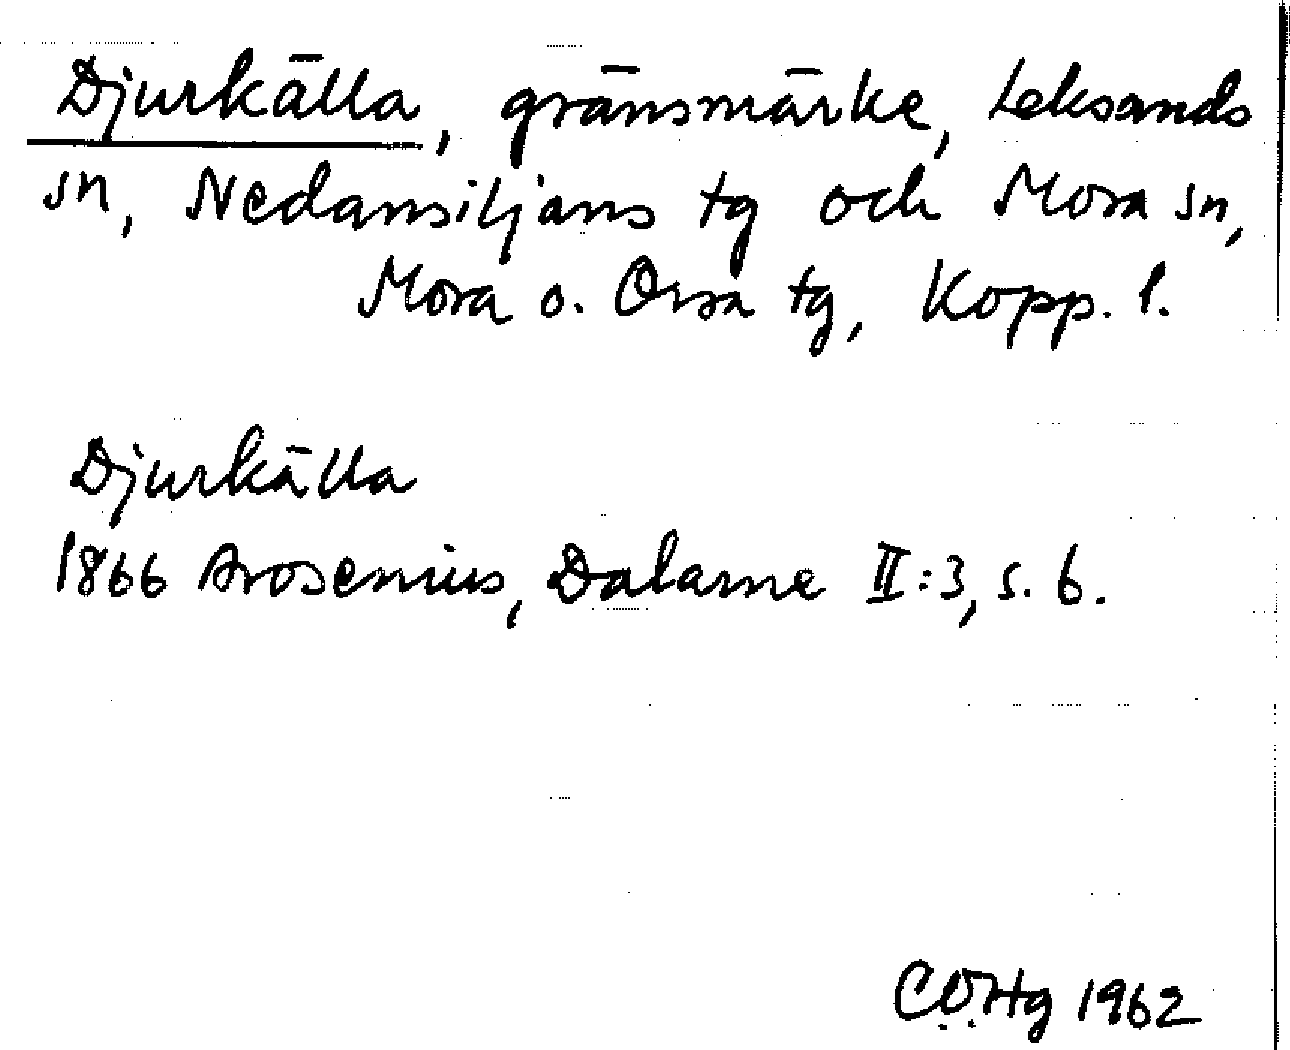 Djurkälla, gränsmärke, Leksands
sn, Nedansiljans tg och Mora sn,
Mora o. Orsa tg, Kopp. l.
Djurkälla
1866 Arosenius, Dalarne II:3, s. 6.
CÖHg 1962